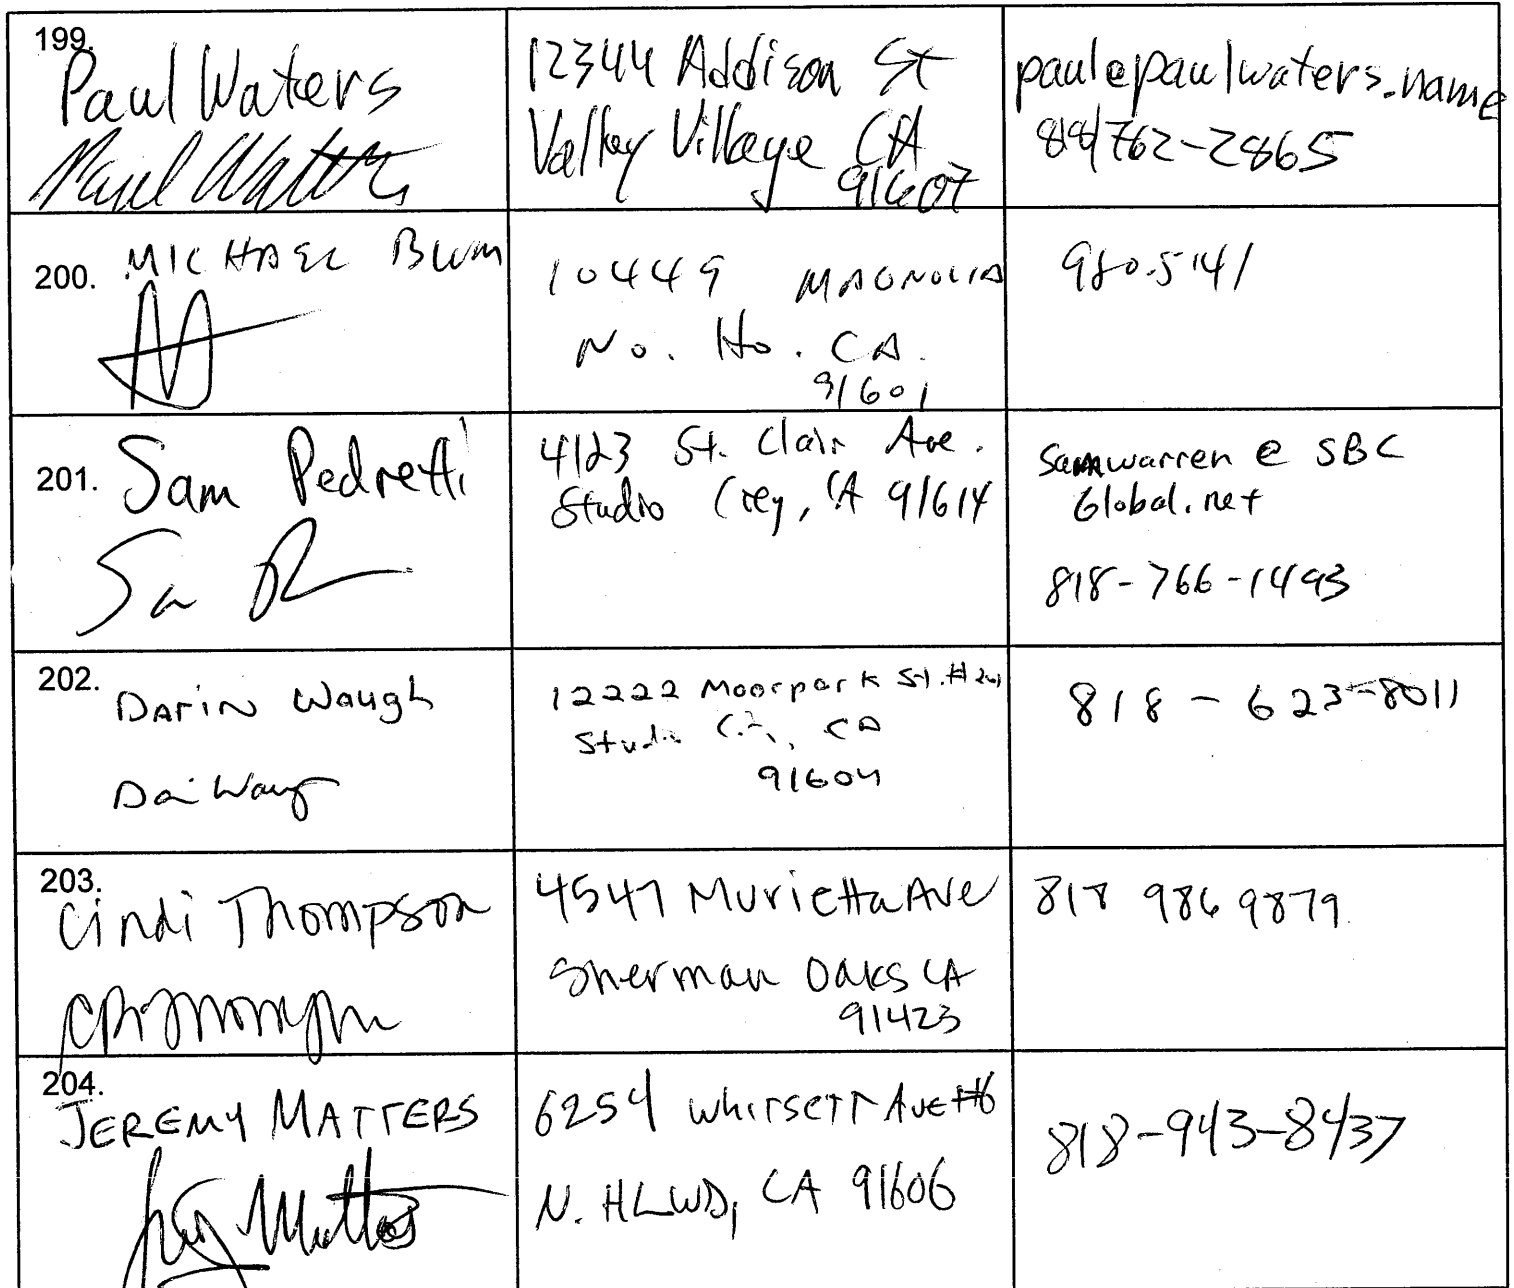 199.
Paul Waters
Paul Waters
12344 Addison St
Valley Village CA
91607
paul@paulwaters.name
818/762-2865
200.
MICHAEL BLUM
10449 MAGNOLIA
No. Ho. CA.
91601
980.5141
201.
Sam Pedretti
4123 St. Clair Ave.
Studio City, CA 91614
samwarren@SBC
Global.net
818-766-1493
202.
Darin Waugh
12222 Moorpark St. #201
Studio City, CA
91604
818-623-8011
203.
Cindi Thompson
4547 Murietta Ave
Sherman Oaks CA
91423
818 986 9879
204.
JEREMY MATTERS
6254 Whitsett Ave #6
N. HLWD, CA 91606
818-943-8437